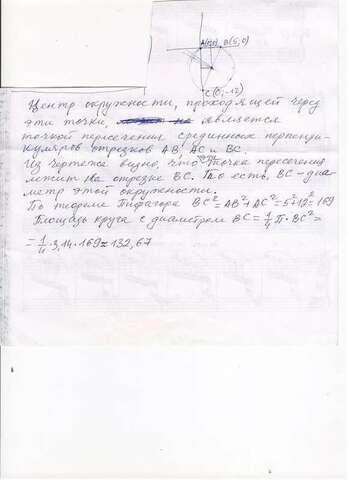 A(0;0) B(5;0)
C(0;-12)
Центр окружности, проходящей через
эти точки, является
точкой пересечения срединных перпенди-
куляров отрезков AB, AC и BC.
Из чертежа видно, что точка пересечения
лежит на отрезке BC. То есть, BC - диа
метр этой окружности.
По теореме Пифагора BC²=AB²+AC²=5²+12²=169
Площадь круга с диаметром BC=1/4 П·BC²=
=1/4·3,14·169≈132,67